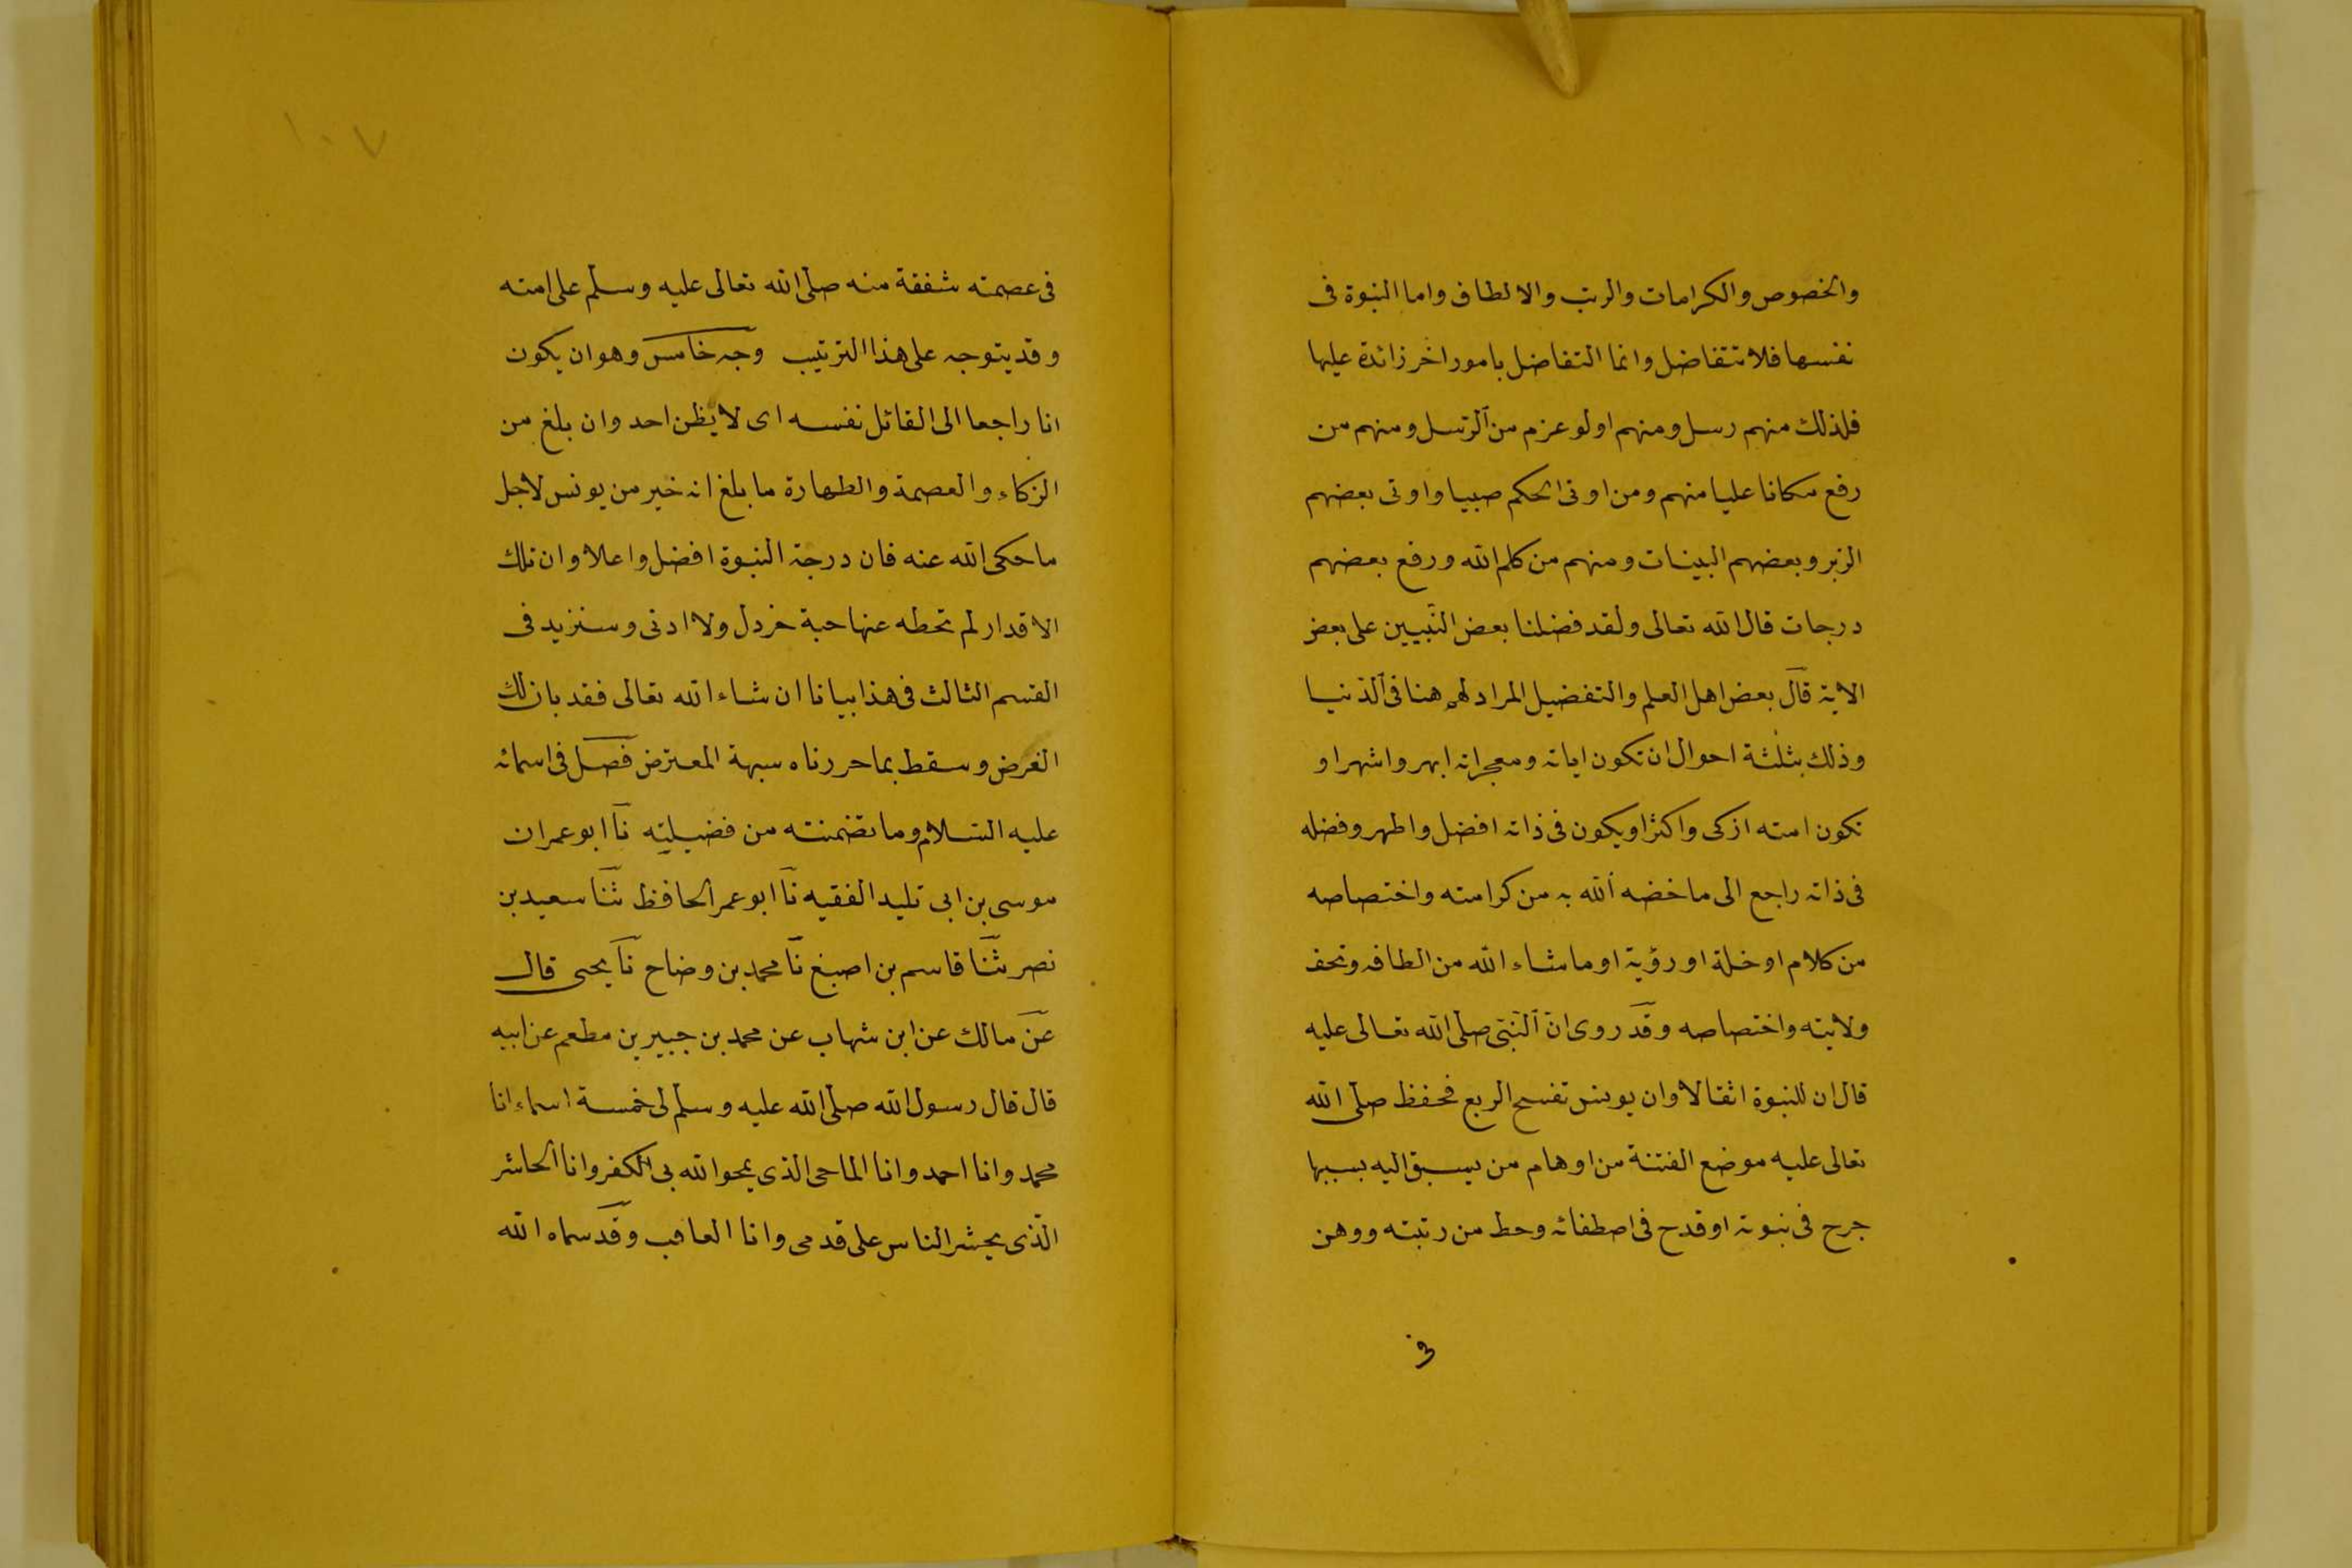 والخصوص والكرامات والرتب والالطاف واما النبوة فى
نفسها فلا تتفاضل وانما التفاضل بامور اخر زائدة عليها
فلذلك منهم رسل ومنهم اولو عزم من الرسل ومنهم من
رفع مكانا عليا منهم ومن اوتى الحكم صبيا واوتى بعضهم
الزبر وبعضهم البينات ومنهم من كلم الله ورفع بعضهم
درجات قال الله تعالى ولقد فضلنا بعض النبيين على بعض
الاية قال بعض اهل العلم والتفضيل المراد لهم هنا فى الدنيا
وذلك بثلثة احوال ان تكون اياته ومعجزاته ابهر واشهر او
تكون امته ازكى واكثر او يكون فى ذاته افضل واطهر وفضله
فى ذاته راجع الى ما خصه الله به من كرامته واختصاصه
من كلام او خلة او رؤية او ما شاء الله من الطافه وتحف
ولايته واختصاصه وقد روى ان النبى صلى الله تعالى عليه
قال ان للنبوة اثقالا وان يونس تفسح الربع فحفظ صلى الله
تعالى عليه موضع الفتنة من اوهام من يسبق اليه بسببها
جرح فى نبوته او قدح فى اصطفائه وحط من رتبته ووهن
فى
١٠٧
فى عصمته شفقة منه صلى الله تعالى عليه وسلم على امته
وقد يتوجه على هذا الترتيب وجه خامس وهو ان يكون
انا راجعا الى القائل نفسه اى لا يظن احد وان بلغ من
الزكاء والعصمة والطهارة ما بلغ انه خير من يونس لاجل
ما حكى الله عنه فان درجة النبوة افضل واعلا وان تلك
الاقدار لم تحطه عنها حبة خردل ولا ادنى وسنزيد فى
القسم الثالث فى هذا بيانا ان شاء الله تعالى فقد بان لك
الغرض وسقط بما حررناه سبهة المعترض فصل فى اسمائه
عليه السلام وما تضمنته من فضيلته نا ابو عمران
موسى بن ابى تليد الفقيه نا ابو عمر الحافظ ثنا سعيد بن
نصر ثنا قاسم بن اصبغ نا محمد بن وضاح نا يحيى قال
عن مالك عن ابن شهاب عن محمد بن جبير بن مطعم عن ابيه
قال قال رسول الله صلى الله عليه وسلم لى خمسة اسماء انا
محمد وانا احمد وانا الماحى الذى يمحوا الله بى الكفر وانا الحاشر
الذى يحشر الناس على قدمى وانا العاقب وقد سماه الله